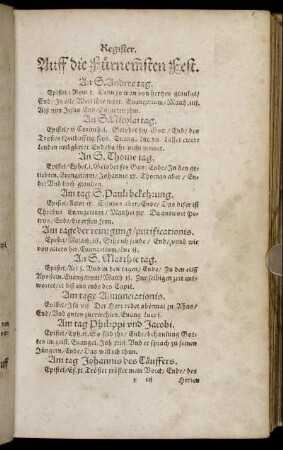 Register.
Auff die Fürnemsten Fest.
An S. Andree tag.
Epistel / Rom. x. Denn so man von hertzen glaubet /
End / In alle Welt ihre wort. Euangelium / Matth. iiij.
Als nun Jesus End / folgeten ihm.
An S. Nicolai tag.
Epistel / ij Corinth. i. Gelobet sey Gott / Ende / des
Trostes theilhafftig seyt. Euang. Luc. xij. Lasset ewre
Lenden umbgürtet Ende / da ihr nicht meinet.
An S. Thome tag.
Epistel / Ephes. i. Gelobet sey Gott / Ende / In dem ge-
liebten. Euangelium / Johannis xx. Thomas aber / En-
de / Und doch glauben.
Am tag S. Pauli bekehrung.
Epistel / Actor. ix. Saulus aber / Ende / Das dieser ist
Christus Euangelium / Matthei xix. Da antwort Pe-
trus / Ende / die ersten seyn.
Am tage der reinigung / purificationis.
Epistel / Malach. iij. Sihe ich sende / End /
von alters her. Euangelium / Luc. ij.
An S. Matthie tag.
Epistel / Act. j. Und in den tagen / Ende / Zu den eilff
Aposteln. Euangelium / Matth. xi. Zur selbigen zeit ant-
wortet / etc. bis ans ende des Capit.
Am tage Annunciationis.
Epistel / Isa. vij. Der Herr redet abermal zu Ahas /
End / Und guten zuerwehlen. Euang. Luce j.
Am tag Philippi vnd Jacobi.
Epistel / Eph. ij. So seid ihr / Ende / behausung Got-
tes im geist. Euangel. Joh. xiiij. Und er sprach zu seinen
Jüngern / Ende / Das wil ich thun.
Am tag Johannis des Täuffers.
Epistel / Es. xl. Tröstet tröstet mein Volck / Ende / des
Herren